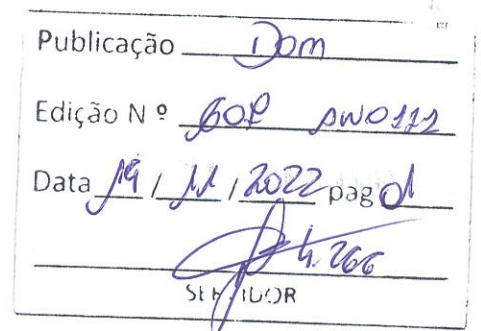 Publicação Dom
Edição Nº ANO
Data 19 / 11 / 2022 pag
4.266
SERVIDOR